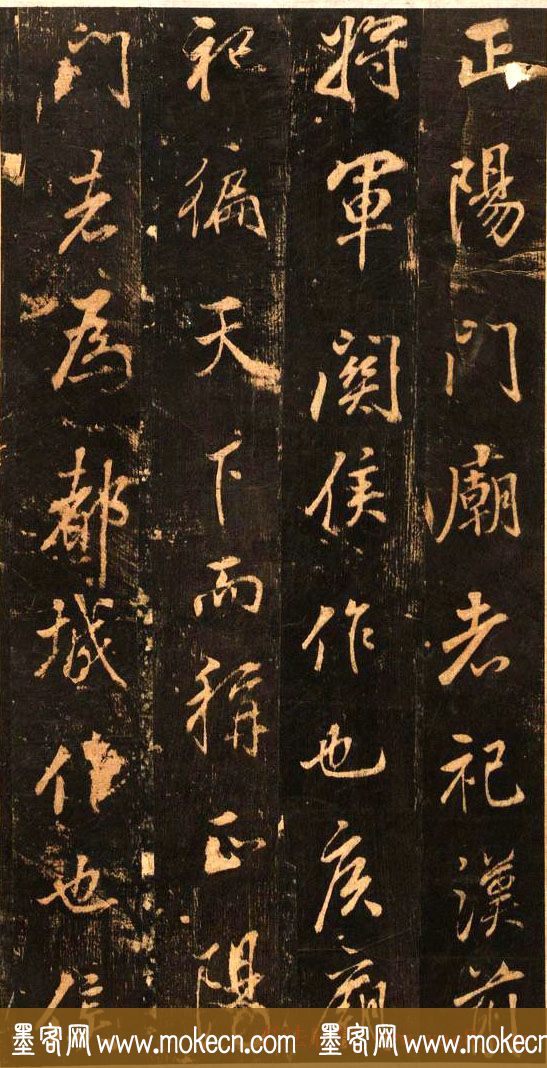 正陽門廟者祀漢前
將軍關侯作也侯廟
祀徧天下而稱正陽
門者為都城作也侯
墨客网 www.mokecn.com 墨客网 www.mokecn.com